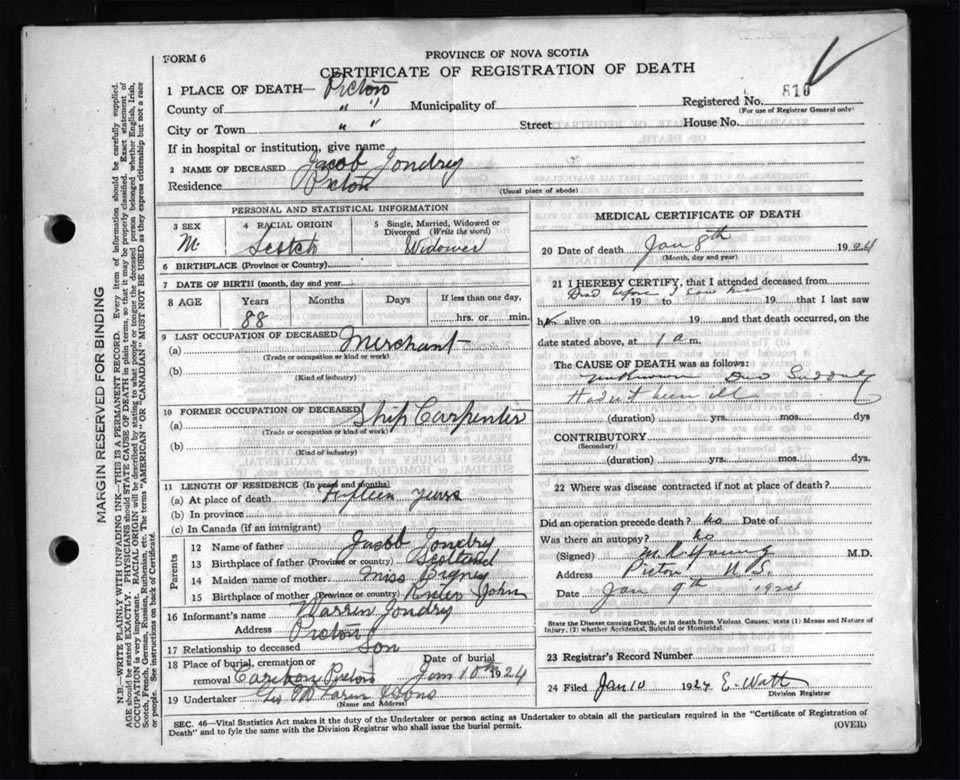 FORM 6
PROVINCE OF NOVA SCOTIA
CERTIFICATE OF REGISTRATION OF DEATH
1 PLACE OF DEATH— Pictou
County of " " Municipality of
Registered No. 810
(For use of Registrar General only)
City or Town " " Street House No.
If in hospital or institution, give name
2 NAME OF DECEASED Jacob Jondrey
Residence Pictou
(Usual place of abode)
PERSONAL AND STATISTICAL INFORMATION
3 SEX M
4 RACIAL ORIGIN Scotch
5 Single, Married, Widowed or Divorced (Write the word) Widower
6 BIRTHPLACE (Province or Country)
7 DATE OF BIRTH (month, day and year)
8 AGE Years 88 Months Days If less than one day, hrs. or min.
9 LAST OCCUPATION OF DECEASED Merchant
(a) (Trade or occupation or kind or work)
(b) (Kind of industry)
10 FORMER OCCUPATION OF DECEASED Ship Carpenter
(a) (Trade or occupation or kind of work)
(b) (Kind of industry)
11 LENGTH OF RESIDENCE (In years and months)
(a) At place of death Fifteen years
(b) In province
(c) In Canada (if an immigrant)
Parents
12 Name of father Jacob Jondrey
13 Birthplace of father (Province or country) Scotland
14 Maiden name of mother Miss Bigney
15 Birthplace of mother (Province or country) River John
16 Informant's name Warren Jondry
Address Pictou
17 Relationship to deceased Son
18 Place of burial, cremation or removal Caribou Pictou Date of burial Jan 10th 1924
19 Undertaker Sons
(Name and Address)
MEDICAL CERTIFICATE OF DEATH
20 Date of death Jan 8th 1924
(Month, day and year)
21 I HEREBY CERTIFY, that I attended deceased from
Died before I saw him
19 to 19 that I last saw
h alive on 19 and that death occurred, on the
date stated above, at 1 a.m.
The CAUSE OF DEATH was as follows:
Unknown Died Suddenly
Hadn't been ill
(duration) yrs. mos. dys
CONTRIBUTORY
(Secondary)
(duration) yrs. mos. dys.
22 Where was disease contracted if not at place of death?
Did an operation precede death? no Date of
Was there an autopsy? no
(Signed) Young M.D.
Address Pictou N.S.
Date Jan 9th 1924
State the Disease causing Death, or in death from Violent Causes, state (1) Means and Nature of
Injury, (2) whether Accidental, Suicidal or Homicidal.
23 Registrar's Record Number
24 Filed Jan 10 1924 E. Watt
Division Registrar
SEC. 46—Vital Statistics Act makes it the duty of the Undertaker or person acting as Undertaker to obtain all the particulars required in the "Certificate of Registration of
Death" and to fyle the same with the Division Registrar who shall issue the burial permit. (OVER)
MARGIN RESERVED FOR BINDING
N.B.—WRITE PLAINLY WITH UNFADING INK—THIS IS A PERMANENT RECORD. Every item of information should be carefully supplied.
AGE should be stated EXACTLY. PHYSICIANS should STATE CAUSE OF DEATH in plain terms, so that it may be properly classified. Exact statement of
OCCUPATION is very important. RACIAL ORIGIN will be described by stating to what people or tongue the deceased person belonged whether English, Irish,
Scotch, French, German, Russian, Ruthenian, etc. The terms "AMERICAN" OR "CANADIAN" MUST NOT BE USED as they express citizenship but not a race
or people. See instructions on back of Certificate.